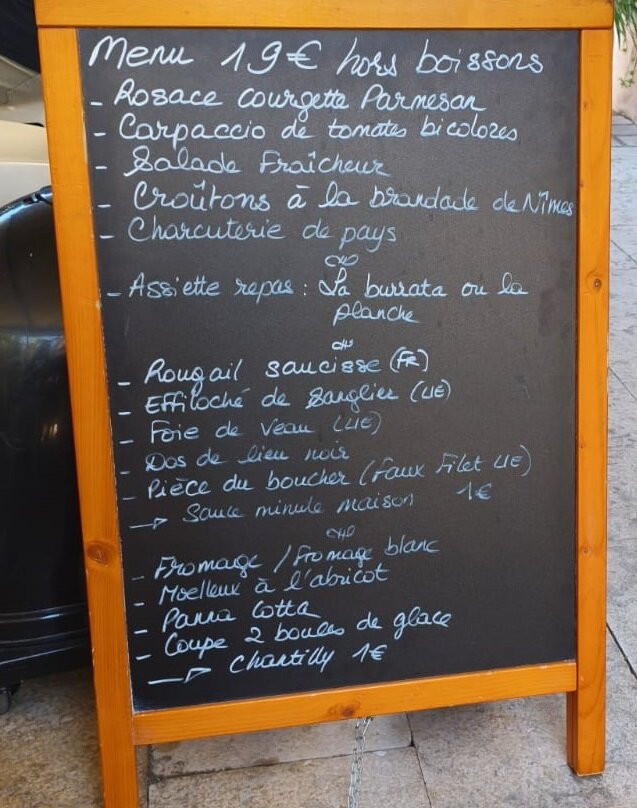 Menu 19€ hors boissons
- Rosace courgette Parmesan
- Carpaccio de tomates bicolores
- Salade Fraîcheur
- Croûtons à la brandade de Nîmes
- Charcuterie de pays
- Assiette repas : La burrata ou la
planche
- Rougail saucisse (FR)
- Effiloché de Sanglier (UE)
- Foie de veau (UE)
- Dos de lieu noir
- Pièce du boucher (Faux Filet UE)
→ Sauce minute maison 1€
- Fromage / Fromage blanc
- Moelleux à l'abricot
- Panna Cotta
- Coupe 2 boules de glace
→ Chantilly 1€